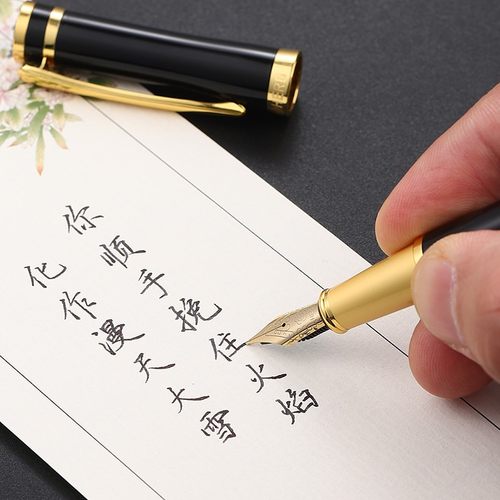 你顺手挽住火焰
化作漫天大雪
HERO